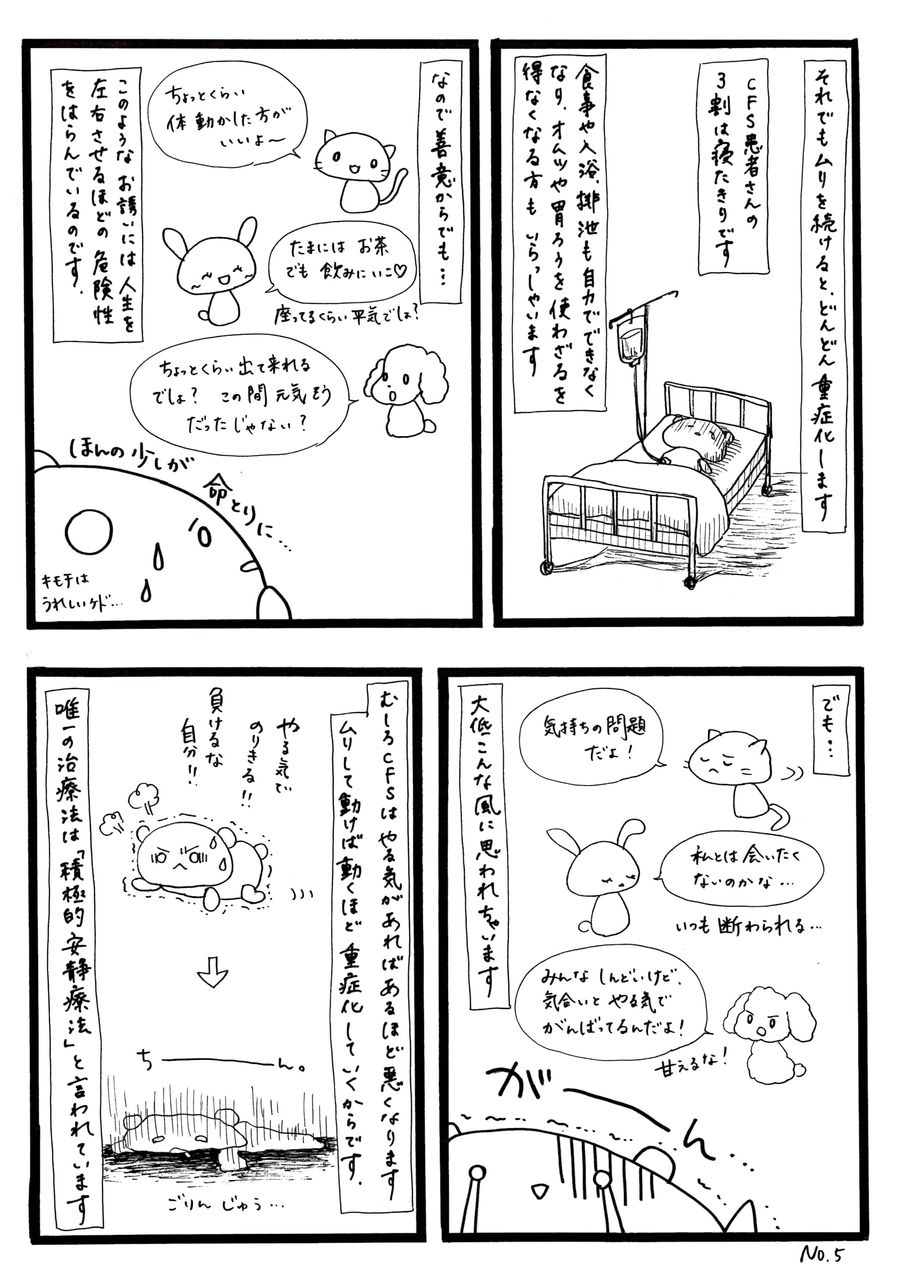 それでもムリを続けると、どんどん重症化します
CFS患者さんの
3割は寝たきりです
食事や入浴、排池も自力でできなく
なり、オムツや胃ろうを使わざるを
得なくなる方も いらっしゃいます
なので善意からでも…
ちょっとくらい
体動かした方が
いいよ〜
たまには お茶
でも 飲みにいこ♡
座ってるくらい平気でしょ?
ちょっとくらい出て来れる
でしょ? この間 元気そう
だったじゃない?
このような お誘いには 人生を
左右させるほどの 危険性
をはらんでいるのです.
ほんの少しが
命とりに…
キモチは
うれしいケド…
でも…
気持ちの問題
だよ!
私とは会いたく
ないのかな…
いつも断わられる…
みんな しんどいけど、
気合いと やる気で
がんばってるんだよ!
甘えるな!
大低こんな風に思われちゃいます
がーーん
むしろCFSは やる気があればあるほど悪くなります
ムリして動けば動くほど 重症化していくからです.
やる気で
のりきる!!
負けるな
自分!!
ちーーーん。
ごりんじゅう…
唯一の治療法は「積極的安静療法」と言われています
No.5